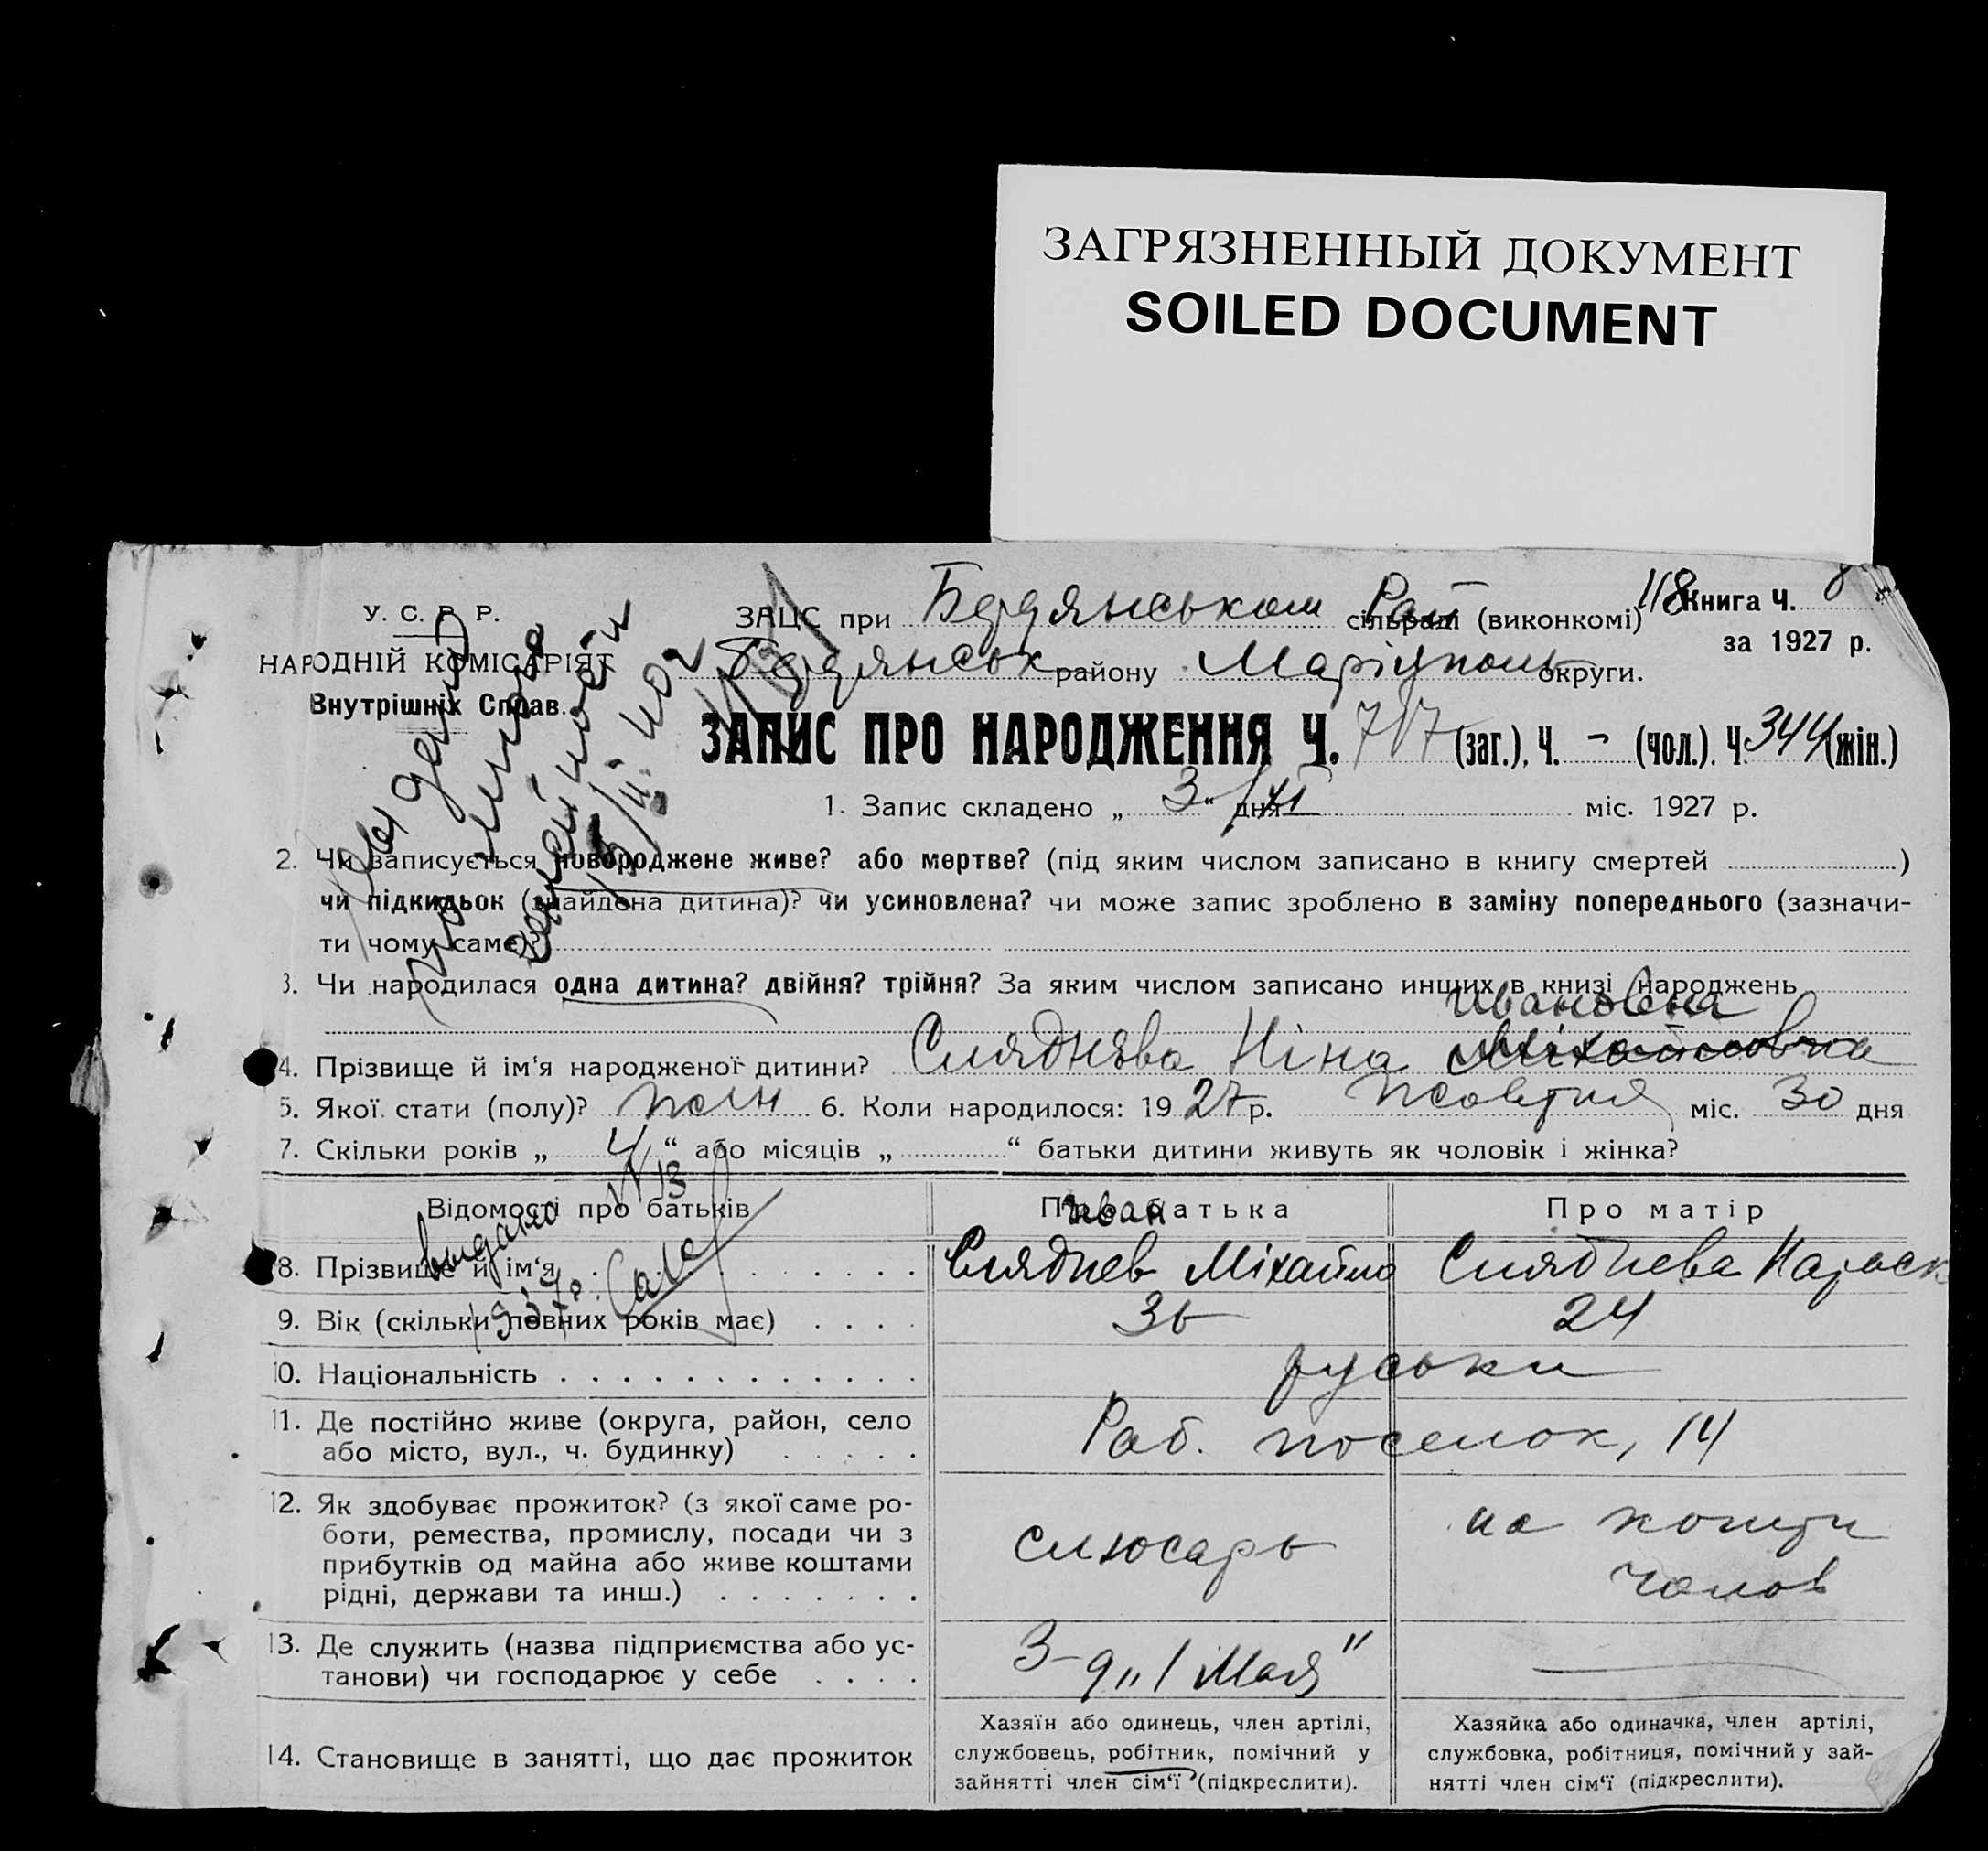 ЗАГРЯЗНЕННЫЙ ДОКУМЕНТ
SOILED DOCUMENT
У. С. Р. Р.
НАРОДНІЙ КОМІСАРІЯТ
Внутрішніх Справ.
ЗАЦС при Бердянськом Рай сільраді (виконкомі) 118 Книга Ч. 8
за 1927 р.
Бердянськ району Маріупольськ округи.
ЗАПИС ПРО НАРОДЖЕННЯ Ч. 717 (заг.), Ч. - (чол.). Ч. 344 (жін.)
1. Запис складено „ 3 “ дня XI міс. 1927 р.
2. Чи записується новороджене живе? або мертве? (під яким числом записано в книгу смертей )
чи підкидьок (знайдена дитина)? чи усиновлена? чи може запис зроблено в заміну попереднього (зазначи-
ти чому саме)?
3. Чи народилася одна дитина? двійня? трійня? За яким числом записано инших в книзі народжень
Ивановна
4. Прізвище й ім‘я народженої дитини? Сляднєва Ніна Міхайловна
5. Якої стати (полу)? жін 6. Коли народилося: 1927 р. Жовтня міс. 30 дня
7. Скільки років „ 4 “ або місяців „ “ батьки дитини живуть як чоловік і жінка?
Відомості про батьків
Про батька
Про матір
Иван
8. Прізвище й ім‘я Сляднев Міхайло Сляднева Параск
9. Вік (скільки повних років має) 36 24
10. Національність руськи
11. Де постійно живе (округа, район, село
або місто, вул., ч. будинку) Раб. поселок, 14
12. Як здобуває прожиток? (з якої саме ро-
боти, ремества, промислу, посади чи з
прибутків од майна або живе коштами
рідні, держави та инш.)
слюсарь
на кошти
чолов
13. Де служить (назва підприємства або ус-
танови) чи господарює у себе
З-д „1 Мая"
14. Становище в занятті, що дає прожиток
Хазяїн або одинець, член артілі,
службовець, робітник, помічний у
зайнятті член сім‘ї (підкреслити).
Хазяйка або одиначка, член артілі,
службовка, робітниця, помічний у зай-
нятті член сім‘ї (підкреслити).